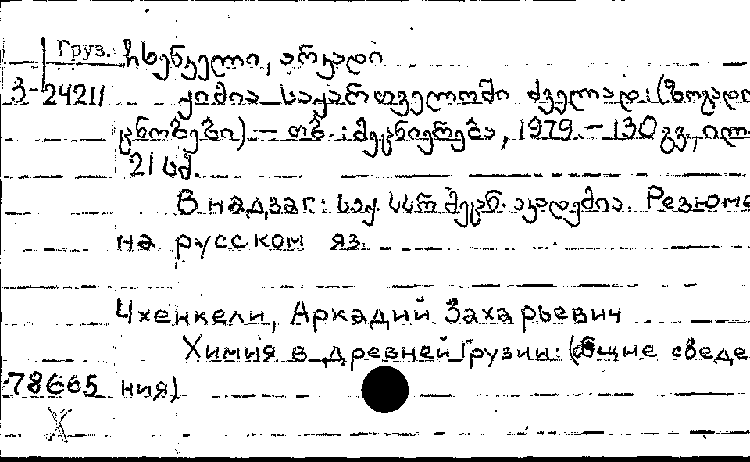 Груз. ჩხენკელი, არკადი
3-24211 ქიმია საქართველოში ძველად: (ზოგადი
ცნობები) – თბ.: მეცნიერება, 1979. – 130 გვ., ილ.
21 სმ.
В надзаг: საქ. სსრ მეცნ. აკადემია. Резюме
на русском яз.
Чхенкели, Аркадий Захарьевич
Химия в древней Грузии: (общие сведе
78665 ния)
X